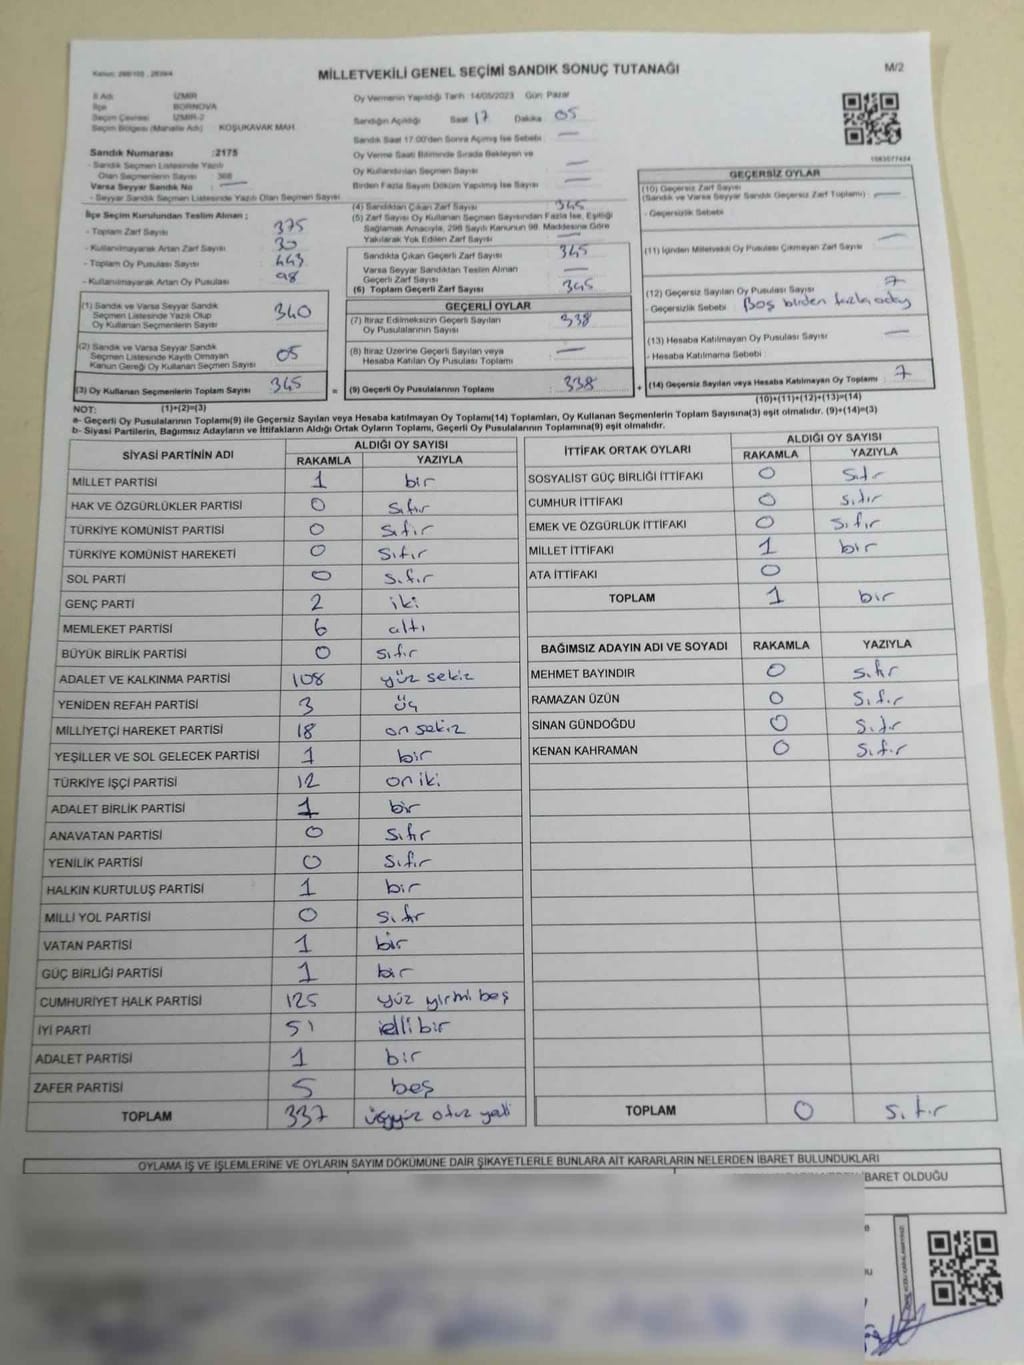 MİLLETVEKİLİ GENEL SEÇİMİ SANDIK SONUÇ TUTANAĞI
M/2
İl Adı : İZMİR
İlçe : BORNOVA
Seçim Çevresi : İZMİR-2
Seçim Bölgesi (Mahalle Adı) : KOŞUKAVAK MAH.
Sandık Numarası :2175
- Sandık Seçmen Listesinde Yazılı
Olan Seçmenlerin Sayısı : 368
Varsa Seyyar Sandık No : —
- Seyyar Sandık Seçmen Listesinde Yazılı Olan Seçmen Sayısı
İlçe Seçim Kurulundan Teslim Alınan ;
- Toplam Zarf Sayısı : 375
- Kullanılmayarak Artan Zarf Sayısı : 30
- Toplam Oy Pusulası Sayısı : 443
- Kullanılmayarak Artan Oy Pusulası : 98
(1) Sandık ve Varsa Seyyar Sandık
Seçmen Listesinde Yazılı Olup
Oy Kullanan Seçmenlerin Sayısı : 340
(2) Sandık ve Varsa Seyyar Sandık
Seçmen Listesinde Kayıtlı Olmayan
Kanun Gereği Oy Kullanan Seçmen Sayısı : 05
(3) Oy Kullanan Seçmenlerin Toplam Sayısı : 345
(1)+(2)=(3)
Oy Vermenin Yapıldığı Tarih :14/05/2023 Gün: Pazar
Sandığın Açıldığı : Saat 17 Dakika 05
Sandık Saat 17:00'den Sonra Açılmış İse Sebebi : —
Oy Verme Saati Bitiminde Sırada Bekleyen ve
Oy Kullandırılan Seçmen Sayısı : —
Birden Fazla Sayım Döküm Yapılmış İse Sayısı : —
(4) Sandıktan Çıkan Zarf Sayısı : 345
(5) Zarf Sayısı Oy Kullanan Seçmen Sayısından Fazla İse, Eşitliği
Sağlamak Amacıyla, 298 Sayılı Kanunun 98. Maddesine Göre
Yakılarak Yok Edilen Zarf Sayısı : —
Sandıkta Çıkan Geçerli Zarf Sayısı : 345
Varsa Seyyar Sandıktan Teslim Alınan
Geçerli Zarf Sayısı : —
(6) Toplam Geçerli Zarf Sayısı : 345
GEÇERLİ OYLAR
(7) İtiraz Edilmeksizin Geçerli Sayılan
Oy Pusulalarının Sayısı : 338
(8) İtiraz Üzerine Geçerli Sayılan veya
Hesaba Katılan Oy Pusulası Toplamı : —
= (9) Geçerli Oy Pusulalarının Toplamı : 338
1083077434
GEÇERSİZ OYLAR
(10) Geçersiz Zarf Sayısı
(Sandık ve Varsa Seyyar Sandık Geçersiz Zarf Toplamı) : —
- Geçersizlik Sebebi :
(11) İçinden Milletvekili Oy Pusulası Çıkmayan Zarf Sayısı : —
(12) Geçersiz Sayılan Oy Pusulası Sayısı : 7
- Geçersizlik Sebebi : Boş birden fazla aday
(13) Hesaba Katılmayan Oy Pusulası Sayısı : —
- Hesaba Katılmama Sebebi :
+ (14) Geçersiz Sayılan veya Hesaba Katılmayan Oy Toplamı : 7
(10)+(11)+(12)+(13)=(14)
NOT:
a- Geçerli Oy Pusulaları Toplamı(9) ile Geçersiz Sayılan veya Hesaba katılmayan Oy Toplamı(14) Toplamları, Oy Kullanan Seçmenlerin Toplam Sayısına(3) eşit olmalıdır. (9)+(14)=(3)
b- Siyasi Partilerin, Bağımsız Adayların ve İttifakların Aldığı Ortak Oyların Toplamı, Geçerli Oy Pusulalarının Toplamına(9) eşit olmalıdır.
SİYASİ PARTİNİN ADI ALDIĞI OY SAYISI
RAKAMLA YAZIYLA
MİLLET PARTİSİ 1 bir
HAK VE ÖZGÜRLÜKLER PARTİSİ 0 sıfır
TÜRKİYE KOMÜNİST PARTİSİ 0 sıfır
TÜRKİYE KOMÜNİST HAREKETİ 0 sıfır
SOL PARTİ 0 sıfır
GENÇ PARTİ 2 iki
MEMLEKET PARTİSİ 6 altı
BÜYÜK BİRLİK PARTİSİ 0 sıfır
ADALET VE KALKINMA PARTİSİ 108 yüz sekiz
YENİDEN REFAH PARTİSİ 3 üç
MİLLİYETÇİ HAREKET PARTİSİ 18 on sekiz
YEŞİLLER VE SOL GELECEK PARTİSİ 1 bir
TÜRKİYE İŞÇİ PARTİSİ 12 on iki
ADALET BİRLİK PARTİSİ 1 bir
ANAVATAN PARTİSİ 0 sıfır
YENİLİK PARTİSİ 0 sıfır
HALKIN KURTULUŞ PARTİSİ 1 bir
MİLLİ YOL PARTİSİ 0 sıfır
VATAN PARTİSİ 1 bir
GÜÇ BİRLİĞİ PARTİSİ 1 bir
CUMHURİYET HALK PARTİSİ 125 yüz yirmi beş
İYİ PARTİ 51 elli bir
ADALET PARTİSİ 1 bir
ZAFER PARTİSİ 5 beş
TOPLAM 337 üçyüz otuz yedi
İTTİFAK ORTAK OYLARI ALDIĞI OY SAYISI
RAKAMLA YAZIYLA
SOSYALİST GÜÇ BİRLİĞİ İTTİFAKI 0 sıfır
CUMHUR İTTİFAKI 0 sıfır
EMEK VE ÖZGÜRLÜK İTTİFAKI 0 sıfır
MİLLET İTTİFAKI 1 bir
ATA İTTİFAKI 0
TOPLAM 1 bir
BAĞIMSIZ ADAYIN ADI VE SOYADI RAKAMLA YAZIYLA
MEHMET BAYINDIR 0 sıfır
RAMAZAN ÜZÜN 0 sıfır
SİNAN GÜNDOĞDU 0 sıfır
KENAN KAHRAMAN 0 sıfır
TOPLAM 0 sıfır
OYLAMA İŞ VE İŞLEMLERİNE VE OYLARIN SAYIM DÖKÜMÜNE DAİR ŞİKAYETLERLE BUNLARA AİT KARARLARIN NELERDEN İBARET BULUNDUKLARI
İBARET OLDUĞU